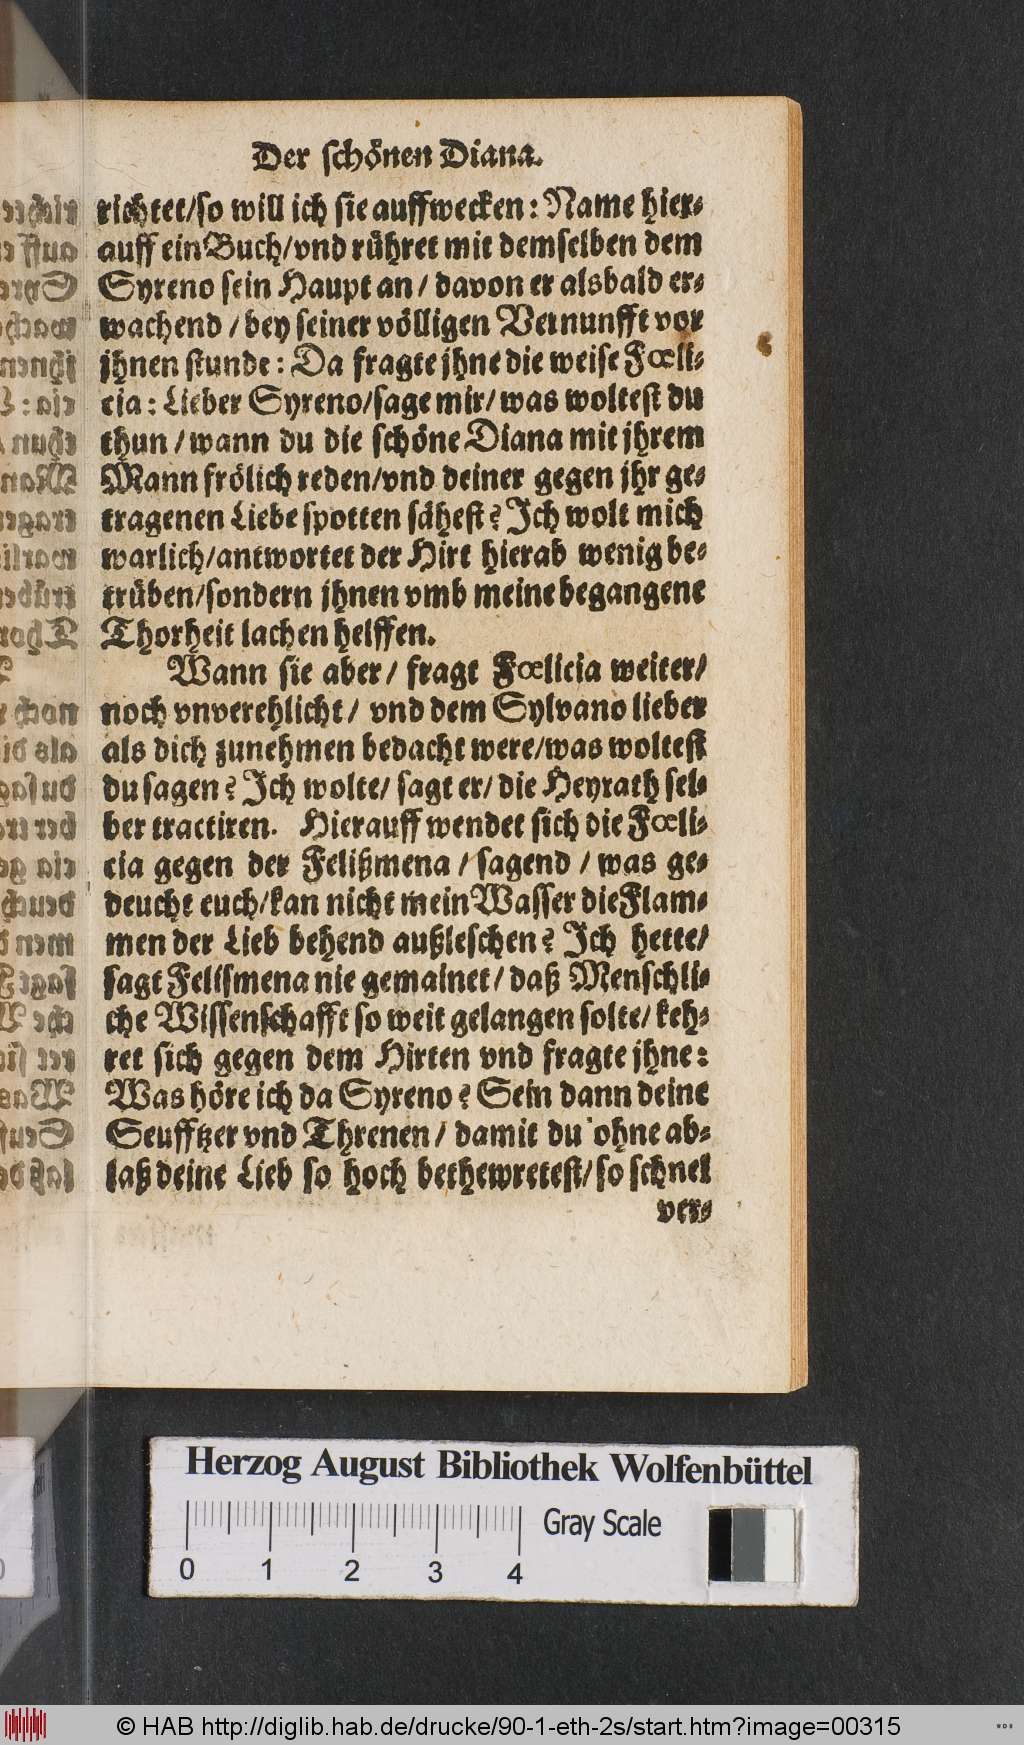 Der schönen Diana.
richtet/so will ich sie auffwecken: Name hier-
auff ein Buch/vnd rühret mit demselben dem
Syreno sein Haupt an/ davon er alsbald er-
wachend / bey seiner völligen Vernunfft vor
jhnen stunde: Da fragte jhne die weise Fœli-
cia: Lieber Syreno/sage mir/ was woltest du
thun / wann du die schöne Diana mit jhrem
Mann frölich reden/vnd deiner gegen jhr ge-
tragenen Liebe spotten sähest? Ich wolt mich
warlich/antwortet der Hirt hierab wenig be-
trüben/sondern jhnen vmb meine begangene
Thorheit lachen helffen.
Wann sie aber/ fragt Fœlicia weiter/
noch vnverehlicht/ vnd dem Sylvano lieber
als dich zunehmen bedacht were/was woltest
du sagen? Ich wolte/ sagt er/ die Heyrath sel-
ber tractiren. Hierauff wendet sich die Fœli-
cia gegen der Felißmena / sagend / was ge-
deucht euch/kan nicht mein Wasser die Flam-
men der Lieb behend außleschen? Ich hette/
sagt Felismena nie gemainet/ daß Menschli-
che Wissenschafft so weit gelangen solte/ keh-
ret sich gegen dem Hirten vnd fragte jhne:
Was höre ich da Syreno? Sein dann deine
Seufftzer vnd Threnen/ damit du ohne ab-
laß deine Lieb so hoch bethewretest/so schnel
ver-
Herzog August Bibliothek Wolfenbüttel
Gray Scale
0 1 2 3 4
© HAB http://diglib.hab.de/drucke/90-1-eth-2s/start.htm?image=00315